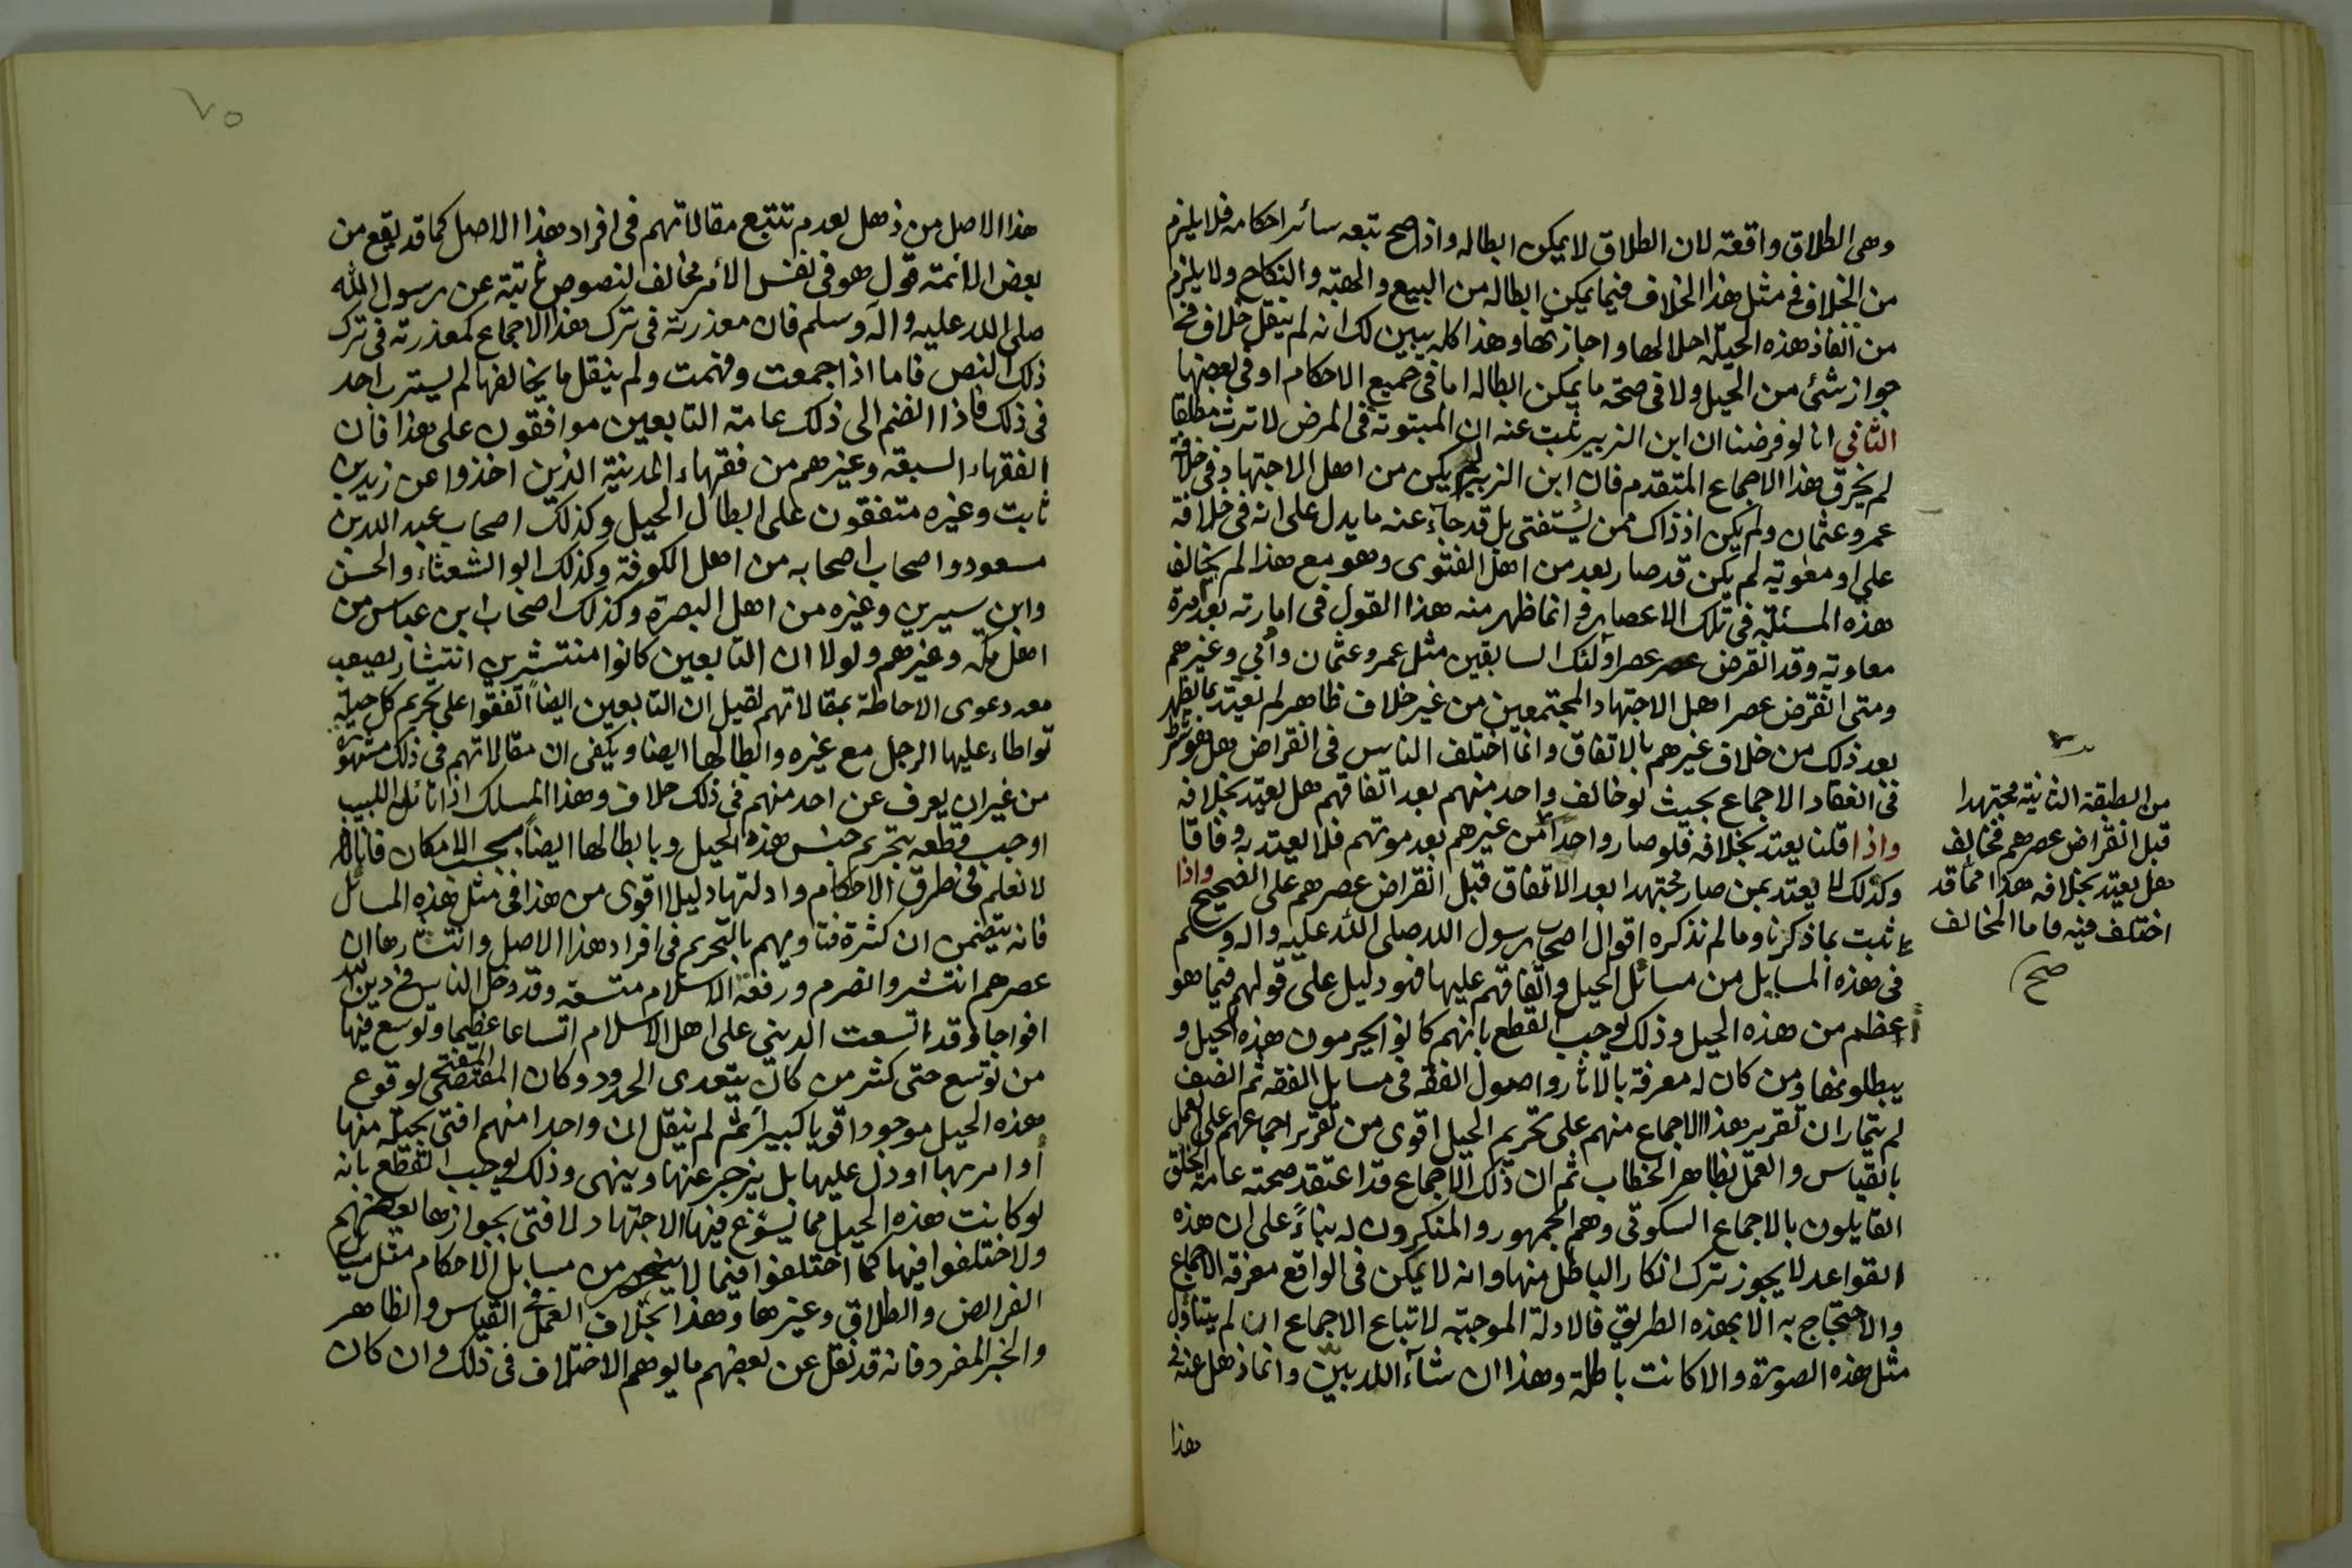 وهى الطلاق واقعة لان الطلاق لا يمكن ابطاله واذا صح تبعه سائر احكامه فلا يلزم
من الخلاف فى مثل هذا الخلاف فيما يمكن ابطاله من البيع والهبة والنكاح ولا يلزم
من انفاذ هذه الحيلة احلالها واجازتها وهذا كله يبين لك انه لم ينقل خلاف فى
جواز شئ من الحيل ولا فى صحة ما يمكن ابطاله اما فى جميع الاحكام او فى بعضها
الثانى انا لو فرضنا ان ابن الزبير ثبت عنه ان المبتوتة فى المرض لا ترث مطلقا
لم يخرق هذا الاجماع المتقدم فان ابن الزبير لم يكن من اهل الاجتهاد فى خلافة
عمر وعثمان ولم يكن اذ ذاك ممن يستفتى بل قد جاء عنه ما يدل على انه فى خلافة
على او معوية لم يكن قد صار بعد من اهل الفتوى وهو مع هذا لم يخالف
هذه المسئلة فى تلك الاعصار وانما ظهر منه هذا القول فى امارته بعد امرة
معاوية وقد انقرض عصر اولئك السابقين مثل عمر وعثمان وأبي وغيرهم
ومتى انقرض عصر اهل الاجتهاد المجتمعين من غير خلاف ظاهر لم يعتد بما يظهر
بعد ذلك من خلاف غيرهم بالاتفاق وانما اختلف الناس فى انقراض هل هو شرط
فى انعقاد الاجماع بحيث لو خالف واحد منهم بعد اتفاقهم هل يعتد بخلافه
واذا قلنا يعتد بخلافه فلو صار واحد من غيرهم بعد موتهم فلا يعتد به وفاقا
وكذلك لا يعتد بمن صار مجتهدا بعد الاتفاق قبل انقراض عصرهم على الصحيح واذا
ثبت بما ذكرنا وما لم نذكره اقوال اصحاب رسول الله صلى الله عليه واله وسلم
فى هذه المسايل من مسائل الحيل واتفاقهم عليها فهو دليل على قولهم فيما هو
اعظم من هذه الحيل وذلك يوجب القطع بانهم كانوا يحرمون هذه الحيل و
يبطلونها ومن كان له معرفة بالاثار واصول الفقه فى مسايل الفقه ثم انصف
لم يتمار ان تقرير هذا الاجماع منهم على تحريم الحيل اقوى من تقرير اجماعهم على العمل
بالقياس والعمل بظاهر الخطاب ثم ان ذلك الاجماع قد اعتقد صحته عامة الخلق
القايلون بالاجماع السكوتى وهم الجمهور والمنكرون له بناءً على ان هذه
القواعد لا يجوز ترك انكار الباطل منها وانه لا يمكن فى الواقع معرفة الاجماع
والاحتجاج به الا بهذه الطريق فالادلة الموجبة لاتباع الاجماع ان لم يتناول
مثل هذه الصورة والا كانت باطلة وهذا ان شآء الله بين وانما ذهل عنه فى
هذا
من الطبقة الثانية مجتهدا
قبل انقراض عصرهم فخالف
هل يعتد بخلافه هذا مما قد
اختلف فيه فاما المخالف
صح
٧٥
هذا الاصل من ذهل لعدم تتبع مقالاتهم فى افراد هذا الاصل كما قد يقع من
بعض الائمة قول هو فى نفس الأمر مخالف لنصوص ثابتة عن رسول الله
صلى الله عليه واله وسلم فان معذرته فى ترك هذا الاجماع كمعذرته فى ترك
ذلك النص فاما اذا جمعت وفهمت ولم ينقل ما يخالفها لم يسترب احد
فى ذلك فاذا انضم الى ذلك عامة التابعين موافقون على هذا فان
الفقهاء السبعة وغيرهم من فقهاء المدينة الذين اخذوا عن زيد بن
ثابت وغيره متفقون على ابطال الحيل وكذلك اصحاب عبد الله بن
مسعود واصحاب اصحابه من اهل الكوفة وكذلك ابو الشعثاء والحسن
وابن سيرين وغيره من اهل البصرة وكذلك اصحاب ابن عباس من
اهل مكة وغيرهم ولولا ان التابعين كانوا منتشرين انتشار يصعب
معه دعوى الاحاطة بمقالاتهم لقيل ان التابعين ايضاً اتفقوا على تحريم كل حيلة
تواطاء عليها الرجل مع غيره وابطالها ايضا ويكفى ان مقالاتهم فى ذلك مشهورة
من غير ان يعرف عن احد منهم فى ذلك خلاف وهذا المسلك اذا تأمله اللبيب
اوجب قطعه بتحريم جنس هذه الحيل وبابطالها ايضاً بحسب الامكان فانا
لا نعلم فى طرق الاحكام وادلتها دليلا اقوى من هذا فى مثل هذه المسائل
فانه يتضمن ان كثرة فتاويهم بالتحريم فى افراد هذا الاصل وانتشارها ان
عصرهم انتشر وانصرم ورقعة الاسلام متسعة وقد دخل الناس فى دين الله
افواجا وقد اتسعت الدنيى على اهل الاسلام اتساعا عظيما وتوسع فيها
من توسع حتى كثر من كان يتعدى الحدود وكان المقتضى لوقوع
هذه الحيل موجودا قويا كبيرا ثم لم ينقل ان واحدا منهم افتى بحيلة منها
أو امر بها او دل عليها بل يزجر عنها وينهى وذلك يوجب القطع بانه
لو كانت هذه الحيل مما يسوغ فيها الاجتهاد لافتى بجوازها بعضهم
ولاختلفوا فيها كما اختلفوا فيما لا ينحصر من مسايل الاحكام مثل مسايل
الفرائض والطلاق وغيرها وهذا بخلاف العمل فى القياس والظاهر
والخبر المفرد فانه قد نقل عن بعضهم ما يوهم الاختلاف فى ذلك وان كان